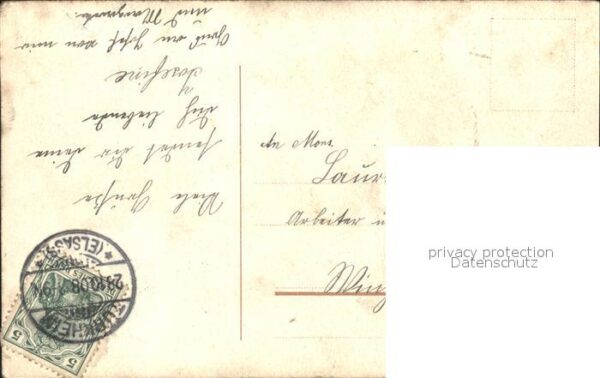 Viele Grüße
sendet dir deine
dich liebende
Josefine
Gruß an Josef von mir
und Margareta.
An Mons.
Laur
Arbeiter i
Wing
TÜRKHEIM
* (ELSASS) *
5
5
privacy protection
Datenschutz